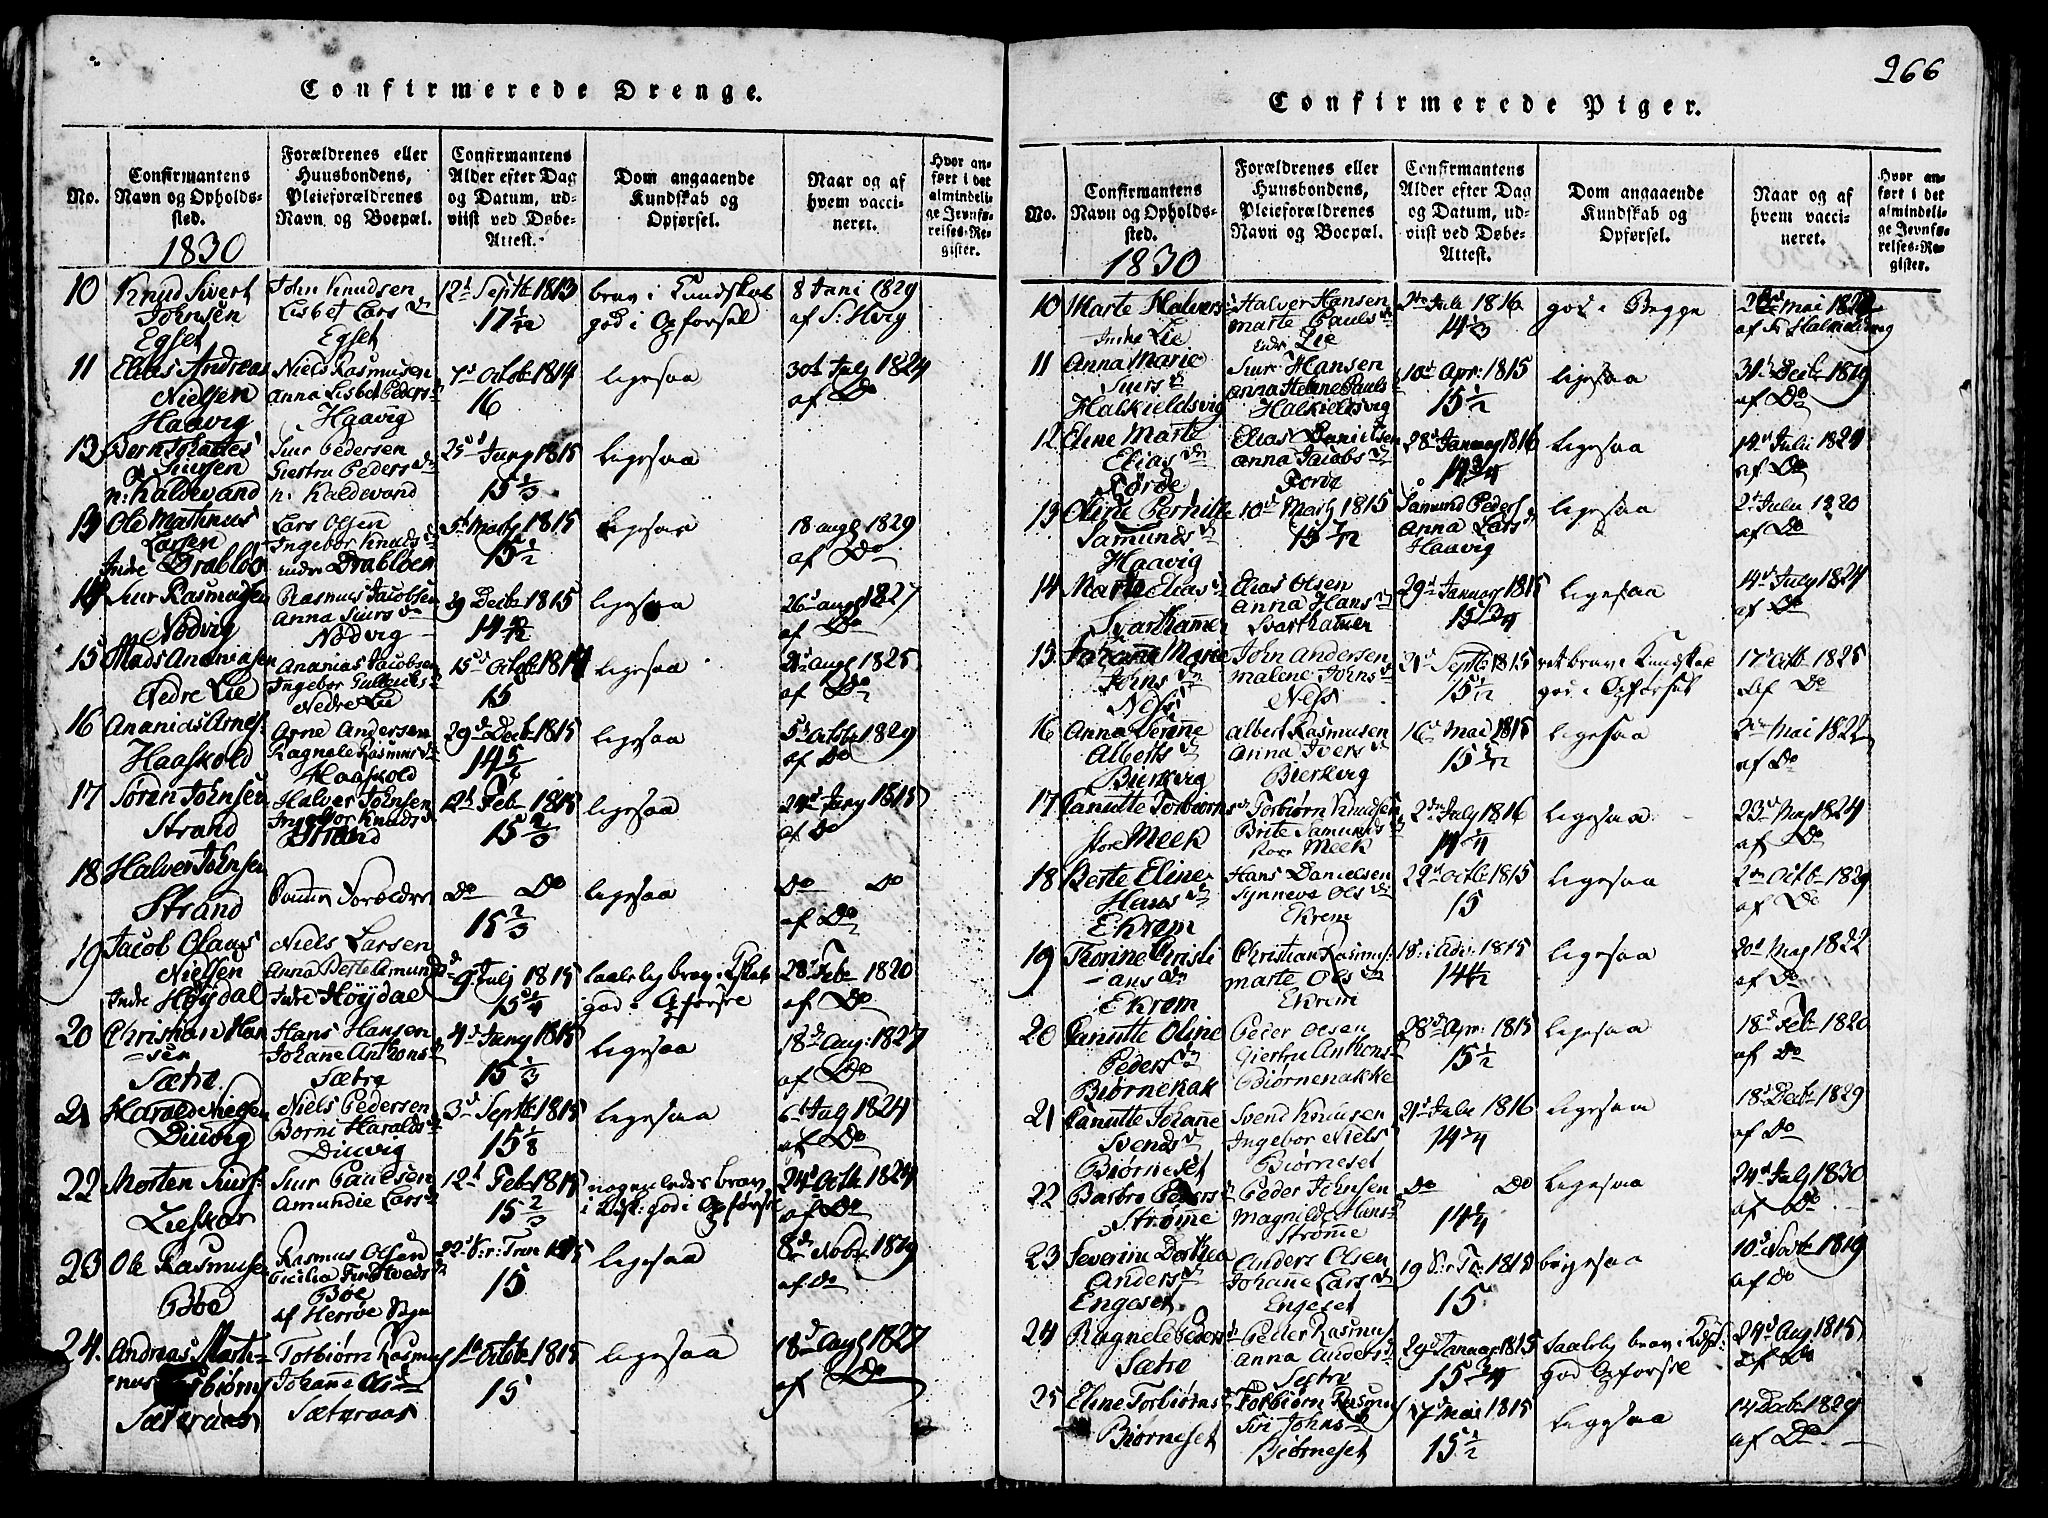 266
Confirmerede Drenge.
No.
Confirmantens
Navn og Opholds-
sted.
1830
Forældrenes eller
Huusbondens,
Pleieforældrenes
Navn og Boepæl.
Confirmantens
Alder efter Dag
og Datum, ud-
viist ved Døbe-
Attest.
Dom angaaende
Kundskab og
Opførsel.
Naar og af
hvem vacci-
neret.
Hvor an-
ført i det
almindeli-
ge Jevnfø-
relses-Re-
gister.
10 Knud Sivert
Johnsen
Egset
John Knudsen
Lisbet Larsdn
Egset
12t Septb 1813
17 1/12
brav i Kundskab
god i Opførsel
8 Juni 1829
af S: Hvig
11 Elias Andreas
Nielsen
Haavig
Niels Rasmusen
Anna Lisbet Peders
Haavig
7d Octob 1814
16
ligesaa
30t July 1824
af Do
12 Bernt
Siursen
n: Kaldevand
Siur Pedersen
Giertru Pedersdn
n: Kaldevand
25d Juny 1815
15 1/3
ligesaa
13 Ole Mathinus
Larsen
Indre Drabløs
Lars Olsen
Ingebor Knuds
indre Drabløs
5t Marty 1815
15 1/2
Ligesaa
18 augt 1829
af Do
14 Siur Rasmusen
Nødvig
Rasmus Jacobsen
Anna Siursdn
Nødvig
29 Decbr 1815
ligesaa
26d augt 1827
af Do
15 Mads Ananiasen
Nedre Lie
Ananias Jacobsen
Ingebor
Nedre Lie
15d Octob 1814
15
ligesaa
augt 1825
af Do
16 Ananias Arnes:
Haaskold
Arne Andersen
Ragnele Rasmusdn
Haaskold
29d Decb 1815
14 5/6
ligesaa
5t Octob 1829
af Do
17 Søren Johnsen
Strand
Halver Johnsen
Ingebor Knuds
Strand
12t Feb 1815
15 2/3
ligesaa
24d Juny 1815
af Do
18 Halver Johnsen
Strand
Do Do
15 2/3
ligesaa
Do Do
af Do
19 Jacob Olaus
Nielsen
Indre Høydal
Niels Larsen
Anna Berte Amunds
Indre Høydal
9 July 1815
15 1/4
god i Opførsel
28d Feb 1820
af Do
20 Christian Han
sen
Sætre
Hans Hansen
Johane Anthons
Sætre
4d Juny 1815
15 1/3
ligesaa
18d Aug: 1827
af Do
21 Harald Nielsen
Diuvig
Niels Pedersen
Borni Haralds
Diuvig
3d Septb 1815
15 1/8
ligesaa
6t July 1824
af Do
22 Morten Siurs:
Lieskar
Siur Paulsen
Amundie Larsd
12t Feb 1815
15 2/3
nogenledes brav
i Kdsk: god i Opførsel
24d Octb 1824
af Do
23 Ole Rasmusen
Bøe
Rasmus Olsen
Cicilia
Bøe
af Herrøe Sogn
22d S: r: Trin 1815
15
ligesaa
8de Nobr 1819
af Do
24. Andreas Marti-
nus Torbiørns
Sæteraas
Torbiørn Rasmus
Johane Olsd
Sæteraas
1te Octob 1815
15
ligesaa
18d Augt 1827
af Do
Confirmerede Piger.
No.
Confirmantens
Navn og Opholds-
sted.
1830
Forældrenes eller
Huusbondens,
Pleieforældrenes
Navn og Boepæl.
Confirmantens
Alder efter Dag
og Datum, ud-
viist ved Døbe-
Attest.
Dom angaaende
Kundskab og
Opførsel.
Naar og af
hvem vacci-
neret.
Hvor an-
ført i det
almindeli-
ge Jevnfø-
relses-Re-
gister.
10 Marte Halvers
Indre Lie
Halver Hansen
Marte Paulsd
indr Lie
July 1816
14 1/3
god i Begge
Mai 1822
11 Anna Marie
Siursdn
Halkieldsvig
Siur Hansen
Anna Helene Pauls
Halkieldsvig
10d Apr: 1815
15 1/2
ligesaa
31t Decb 1819
af Do
12 Eline Marte
Eliasdn
Førde
Elias Danielsen
Anna Jacobsd
Førde
28d January 1816
14 3/4
ligesaa
14d Juli 1824
af Do
13 Oline Pernille
Samundsdn
Haavig
10d Marty 1815
15 7/12
Samund Peders
Anna Larsd
Haavig
ligesaa
2d Julu 1820
af Do
14 Marte Eliasd
Svarthamer
Elias Olsen
Anna Hansd
Svarthamer
29d January 1815
15 3/4
ligesaa
14d July 1824
af Do
15 Johanne Marie
Johnsdn
Ness
John Andersen
Malene Johnsd
Ness
21d Septb 1815
15 1/12
ret brav i Kundskab
god i Opførsel
17d Octb 1825
af Do
16 Anna
Albertsdn
Bierkvig
Albert Rasmusen
Anna Iversd
Bierkvig
16d Mai 1815
15 5/12
ligesaa
2den Mai 1822
af Do
17 Canutte Torbiørnsd
store Meek
Torbiørn Knudsen
Brite Samundsd
store Meek
2den July 1816
14 1/4
ligesaa
23d May 1824
af Do
18 Berte Eline
Hansdn
Ekrem
Hans Danielsen
Synneva Olsdn
Ekrem
22d Octb 1815
15
ligesaa
2den Octb 1829
af Do
19 Tronne Cristi
ansdn
Ekrem
Christian Rasmus:
Marte Olsdn
Ekrem
1815
14 1/2
ligesaa
20d May 1822
af Do
20 Canutte Oline
Pedersdn
Biørnenak
Peder Olsen
Giertru Anthons
Biørnenakke
28d Apr: 1815
15 1/2
ligesaa
18d Feb 1820
af Do
21 Canutte Johanne
Svendsd
Biørneset
Svend Knudsen
Ingebor Nielsd
Biørneset
21d Julu 1816
14 1/4
ligesaa
18d Decb 1829
af Do
22 Barbro Pedersd
Strømme
Peder Johnsen
Magnilde Hans
Strømme
Do Do
14 1/4
ligesaa
24d July 1830
af Do
23 Severine Dorthea
Andersdn
Engeset
Anders Olsen
Johanne Larsdn
Engeset
19 S: r: Tr: 1815
15
ligesaa
10d Novb 1819
af Do
24 Ragnele Pedersd
Sætre
Peder Rasmus
Anna Andersd
Sætre
29d Januar 1815
15 3/4
saaledes brav i Kdsk:
god Opførsel
24d Aug 1815
af Do
25 Eline Torbiørnsd
Biørneset
Torbiørn Rasmus
Siri Johnsd
Biørneset
17d Mai 1815
15 1/2
ligesaa
14 Decb 1829
af Do